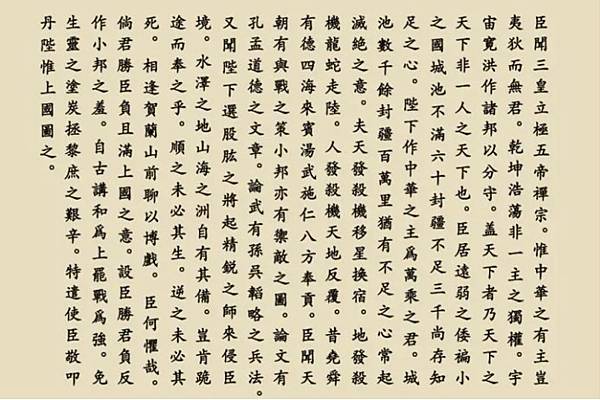 臣聞三皇立極五帝禪宗。惟中華之有主豈
夷狄而無君。乾坤浩蕩非一主之獨權。宇
宙寬洪作諸邦以分守。蓋天下者乃天下之
天下非一人之天下也。臣居遠弱之倭褊小
之國城池不滿六十封疆不足三千尚存知
足之心。陛下作中華之主爲萬乘之君。城
池數千餘封疆百萬里猶有不足之心常起
滅絶之意。夫天發殺機移星換宿。地發殺
機龍蛇走陸。人發殺機天地反覆。昔堯舜
有德四海來賓湯武施仁八方奉貢。臣聞天
朝有與戰之策小邦亦有禦敵之圖。論文有
孔孟道德之文章。論武有孫吳韜略之兵法。
又聞陛下選股肱之將起精鋭之師來侵臣
境。水澤之地山海之洲自有其備。豈肯跪
途而奉之乎。順之未必其生。逆之未必其
死。相逢賀蘭山前聊以博戲。臣何懼哉。
倘君勝臣負且滿上國之意。設臣勝君負反
作小邦之羞。自古講和爲上罷戰爲強。免
生靈之塗炭拯黎庶之艱辛。特遣使臣敬叩
丹陛惟上國圖之。